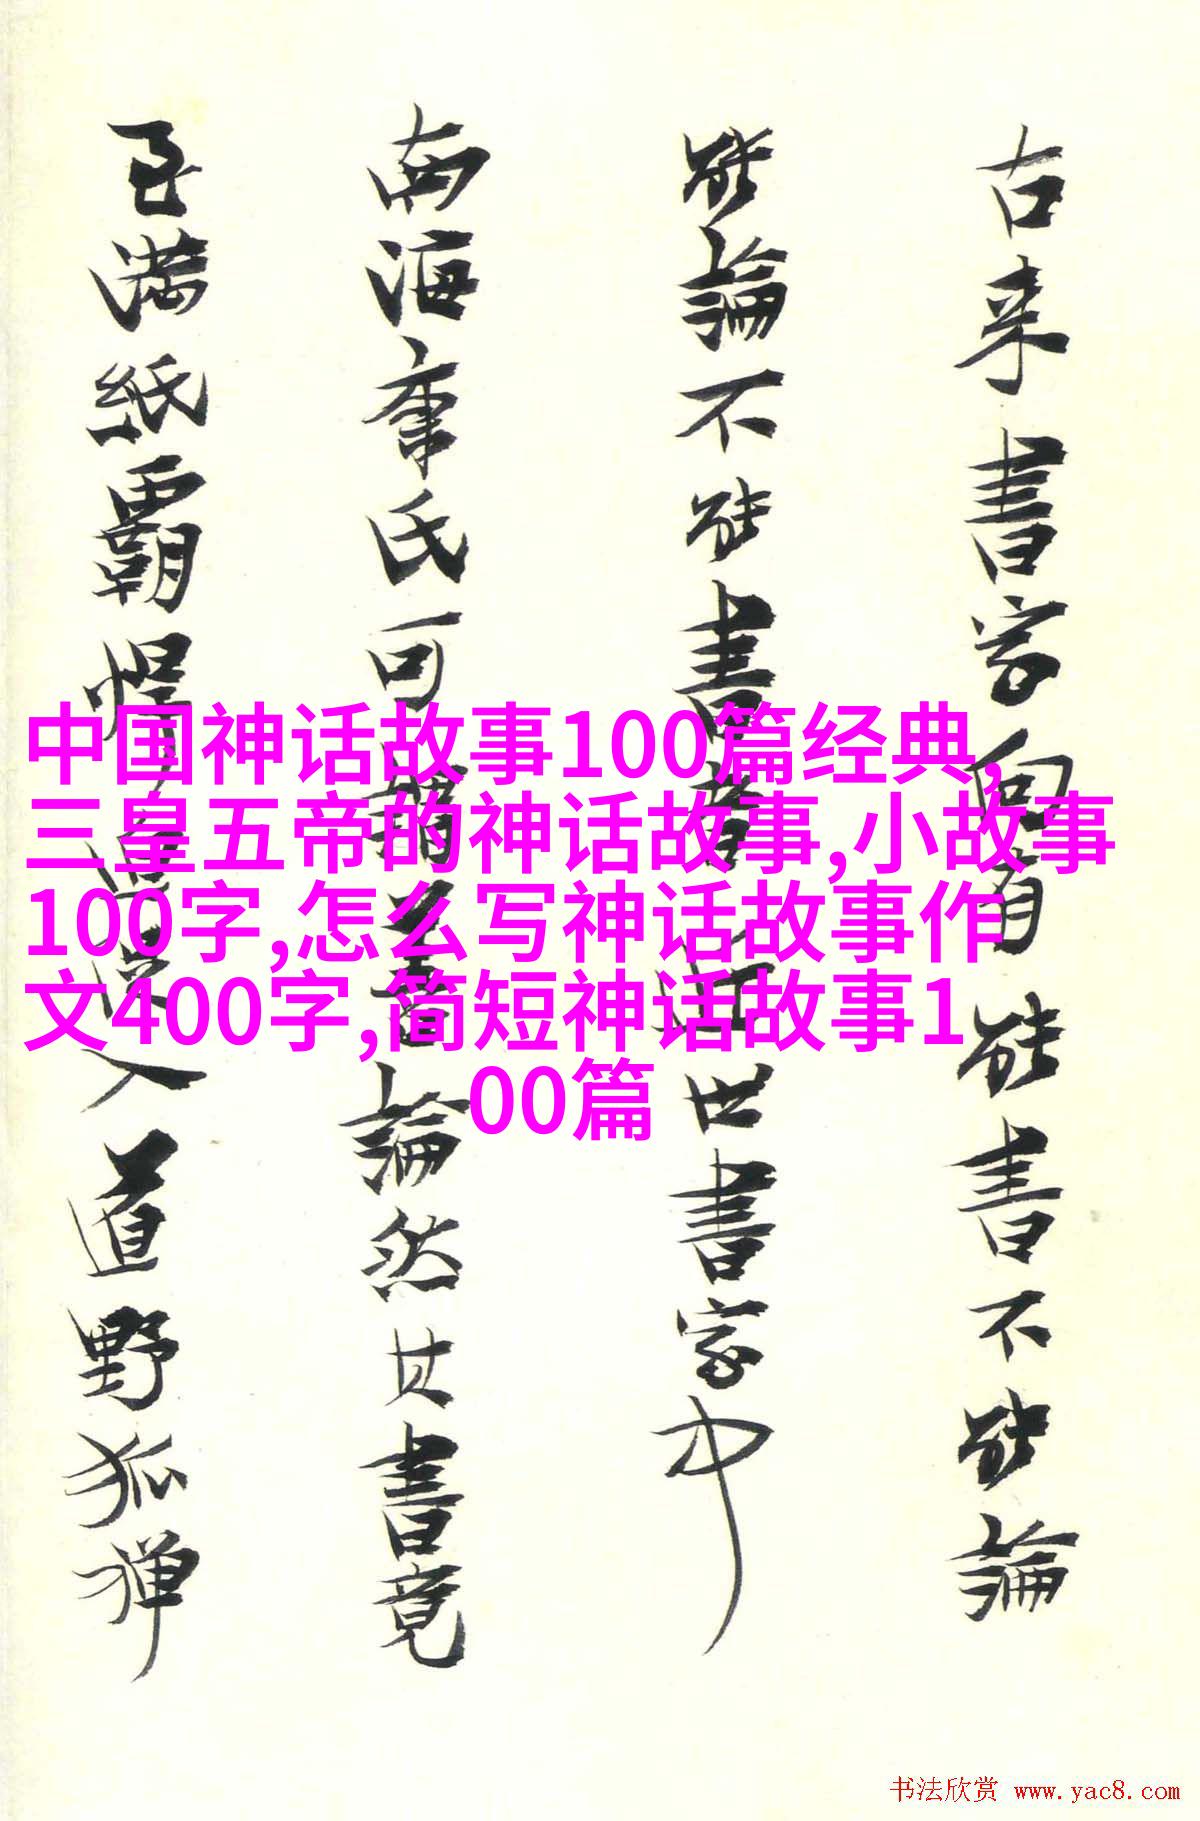 古来書家向有能書不能論
能論不能書者近世書家中
南海康氏可謂善論然其書竟
至满紙覇悍入道野狐禅
中国神话故事100篇经典,
三皇五帝的神话故事,小故事
100字,怎么写神话故事作
文400字,简短神话故事1
00篇
书法欣赏 www.yac8.com